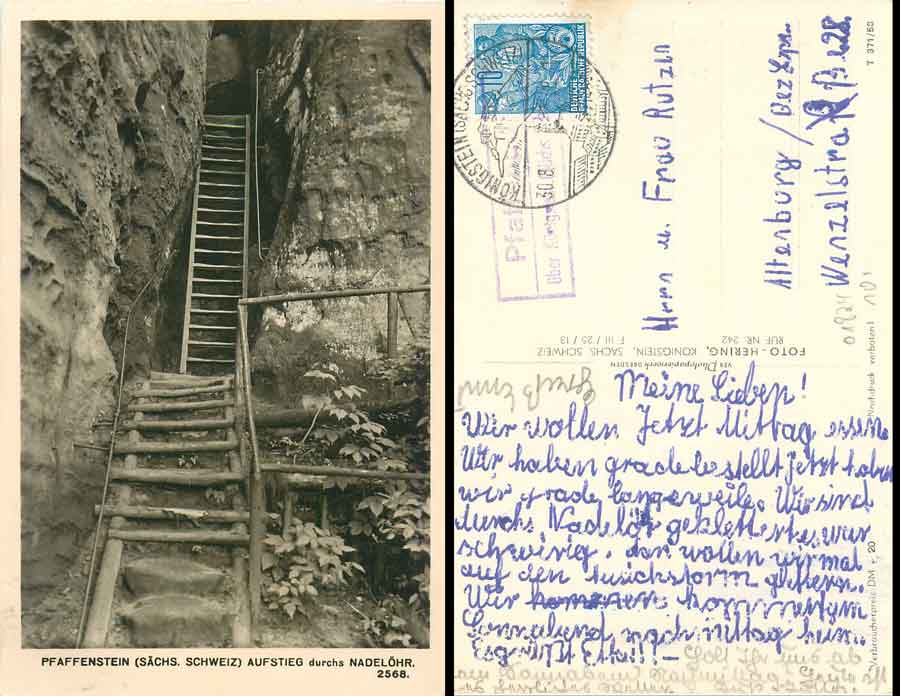 PFAFFENSTEIN (SÄCHS. SCHWEIZ) AUFSTIEG durchs NADELÖHR.
2568.
10
DEUTSCHE
DEMOKRATISCHE REPUBLIK
KÖNIGSTEIN (SÄCHS SCHWEIZ)
30.8.
Pfaf
über Königs
Herrn u. Frau Rutzen
Altenburg / Bez Lpz.
Wenzelstraße 28.
T 371/53
FOTO-HERING, KÖNIGSTEIN, SÄCHS. SCHWEIZ
RUF NR. 242 F III / 25 / 13
VEB Photopapierwerk DRESDEN
Nachdruck verboten!
Verbraucherpreis DM 0,20
Meine Lieben!
Wir wollen Jetzt Mittag essen
Wir haben grade bestellt Jetzt haben
wir grade langeweile. Wir sind
durchs Nadelör geklettert es war
schwirig. dan wollen wir mal
auf den
Wir kommen kommen am
Sonnabend nach mittag heim.
Es grüßt
Sollt Ihr uns ab